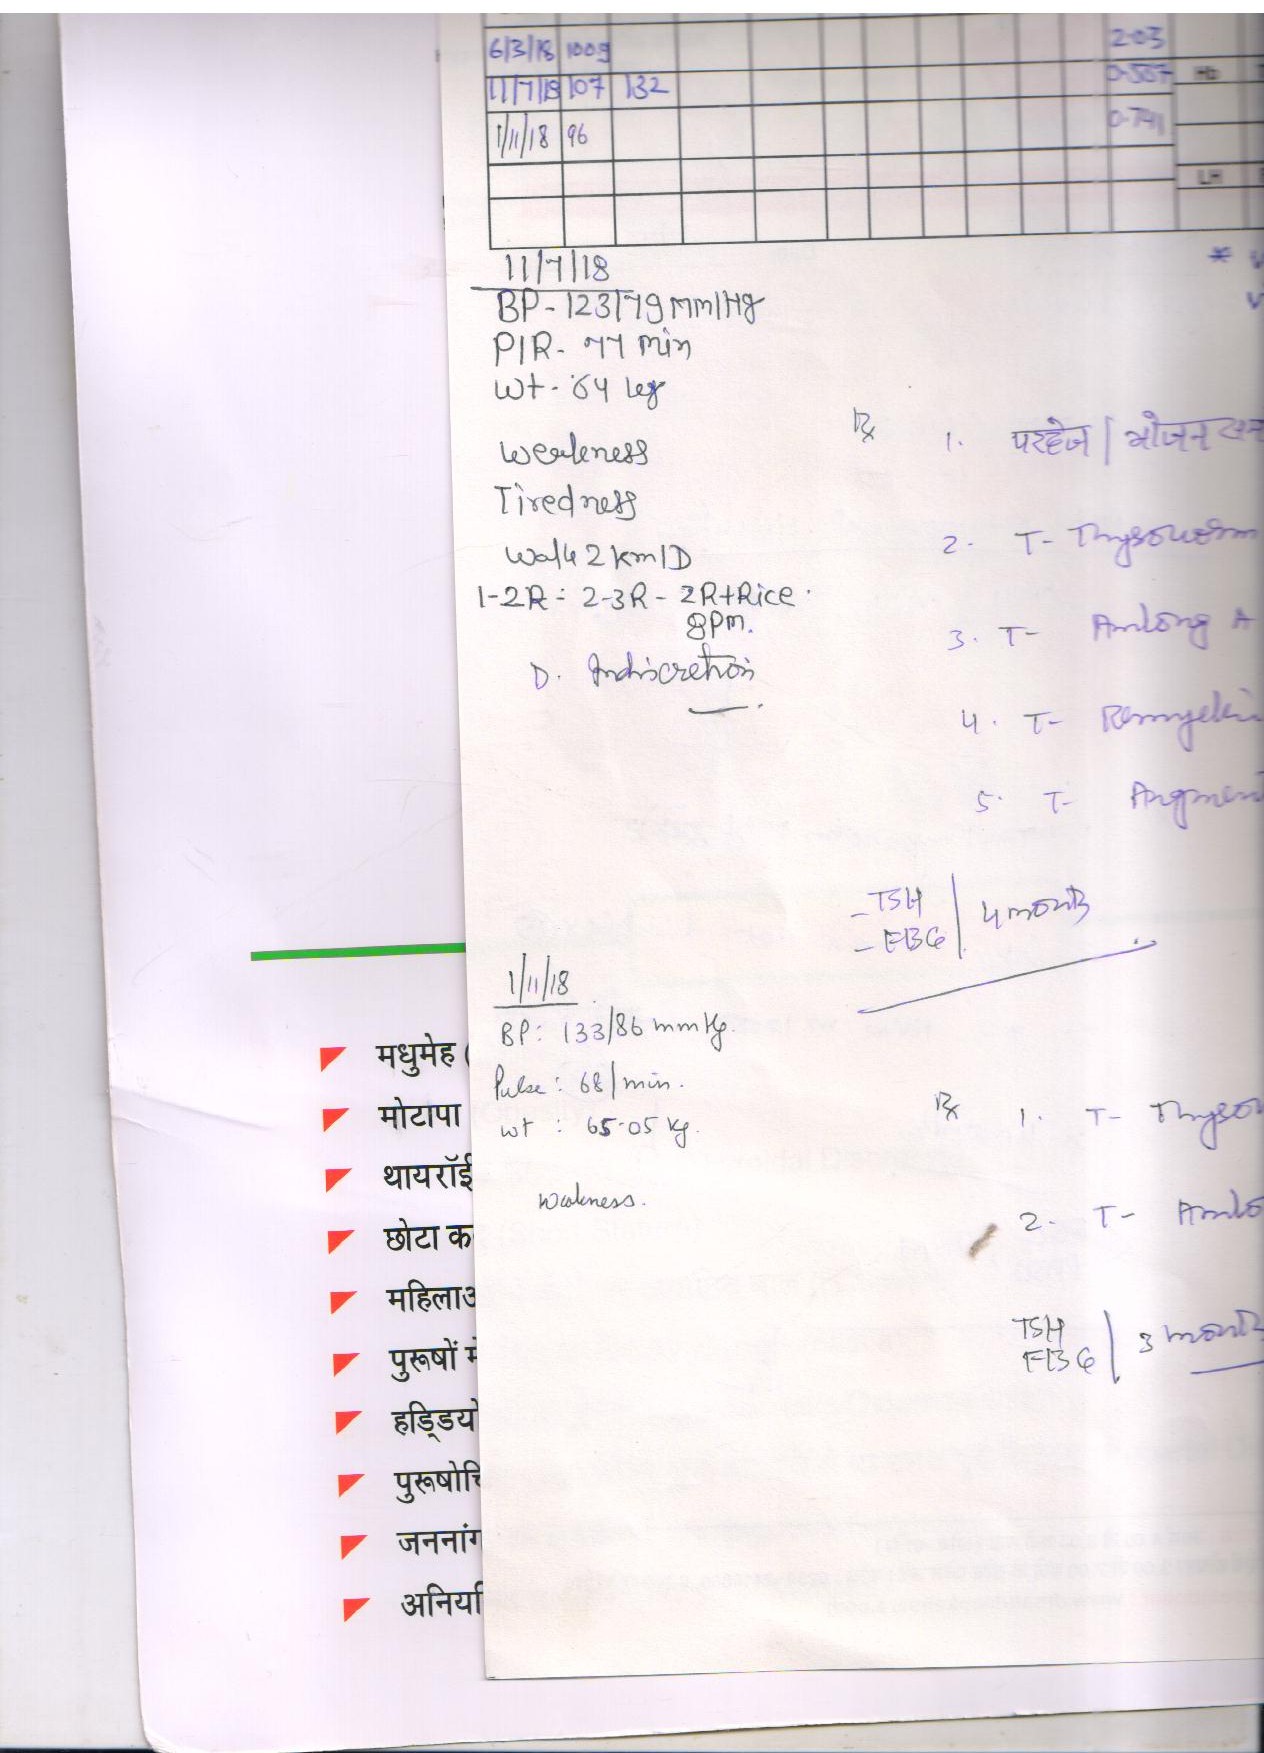 6/3/18 100g 2.03
11/7/18 107 132 0.567 Hb
1/11/18 96 0.741
LH
11/7/18
BP- 123/79 mm/Hg
P/R- 77 min
wt- 64 kg
Rx 1. परहेज / भोजन
weakness
Tiredness
2. T- Thyronorm
walk 2 km/D
1-2R = 2-3R - 2R+Rice
8pm.
3. T- Amlong A
D. Indiscretion
4. T-
5. T-
- TSH
- FBG | 4 months
1/11/18
BP: 133/86 mmHg.
Pulse: 68/min.
wt : 65.05 kg.
Rx 1. T-
weakness.
2. T- Amlo
TSH
FBG | 3 months
मधुमेह (
मोटापा
थायरॉई
छोटा क
महिलाअ
पुरूषों मे
हड्डियों
पुरूषोचि
जननांग
अनियमि